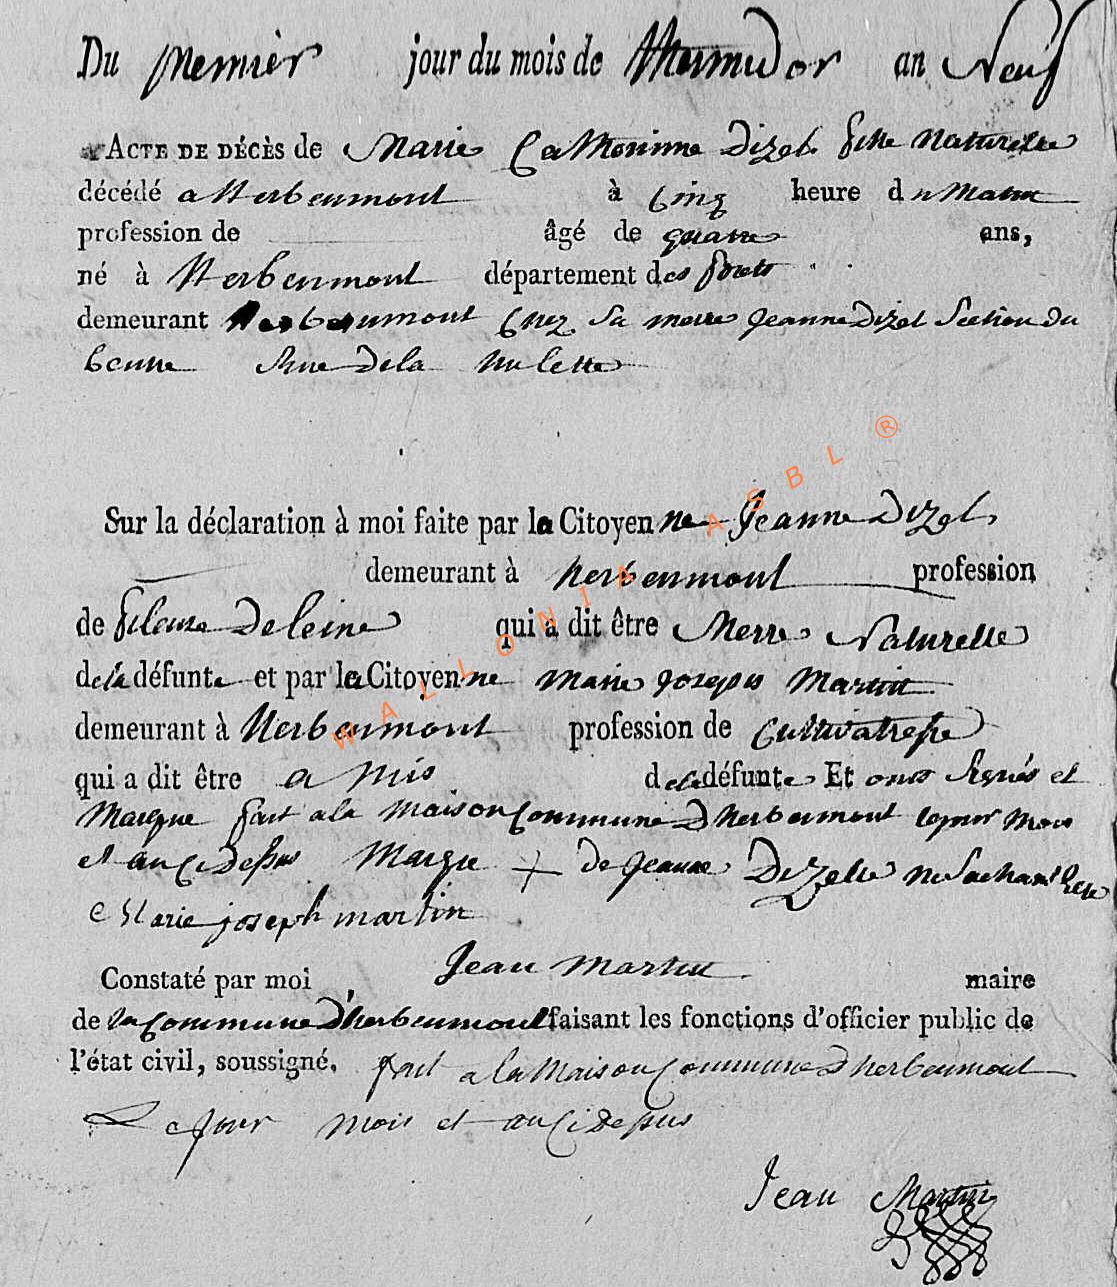 Du premier jour du mois de thermidor an Neuf
ACTE DE DÉCÈS de Marie Catherinne Dizel fille Naturelle
décédé a Herbeumont à Cinq heure du Matin
profession de âgé de quatre ans,
né à Herbeumont département des forets
demeurant Herbeumont Chez Sa merre Jeanne Dizel Section du
Rue Dela
Sur la déclaration à moi faite par la Citoyenne Jeanne Dizel
demeurant à herbeumont profession
de fileuse De leine qui a dit être Merre Naturelle
de la défunte et par la Citoyenne Marie Joseph Martin
demeurant à Herbeumont profession de Cultivatresse
qui a dit être amis de la défunte Et onts Signés et
Marque fait a la Maison Commune D'herbeumont le jour Mois
et an Ci Dessus Marque + de Jeanne Dizelle ne Sachant
Marie joseph martin
Constaté par moi Jean Martin maire
de la Commune D'herbeumont faisant les fonctions d'officier public de
l'état civil, soussigné. fait a la Maison Commune D'herbeumont
Le jour Mois et an Ci Dessus
Jean Martin
WALLONIA ASBL ®